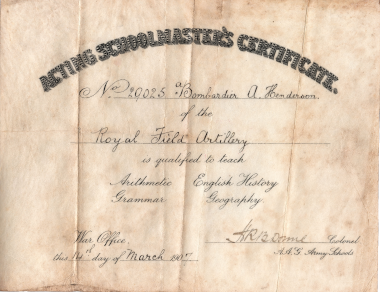 ACTING SCHOOLMASTER'S CERTIFICATE.
No 20025 a/Bombardier A. Henderson
of the
Royal Field Artillery
is qualified to teach
Arithmetic English History
Grammar Geography.
War Office, Colonel
this 1st day of March 1907 A.A.G. Army Schools